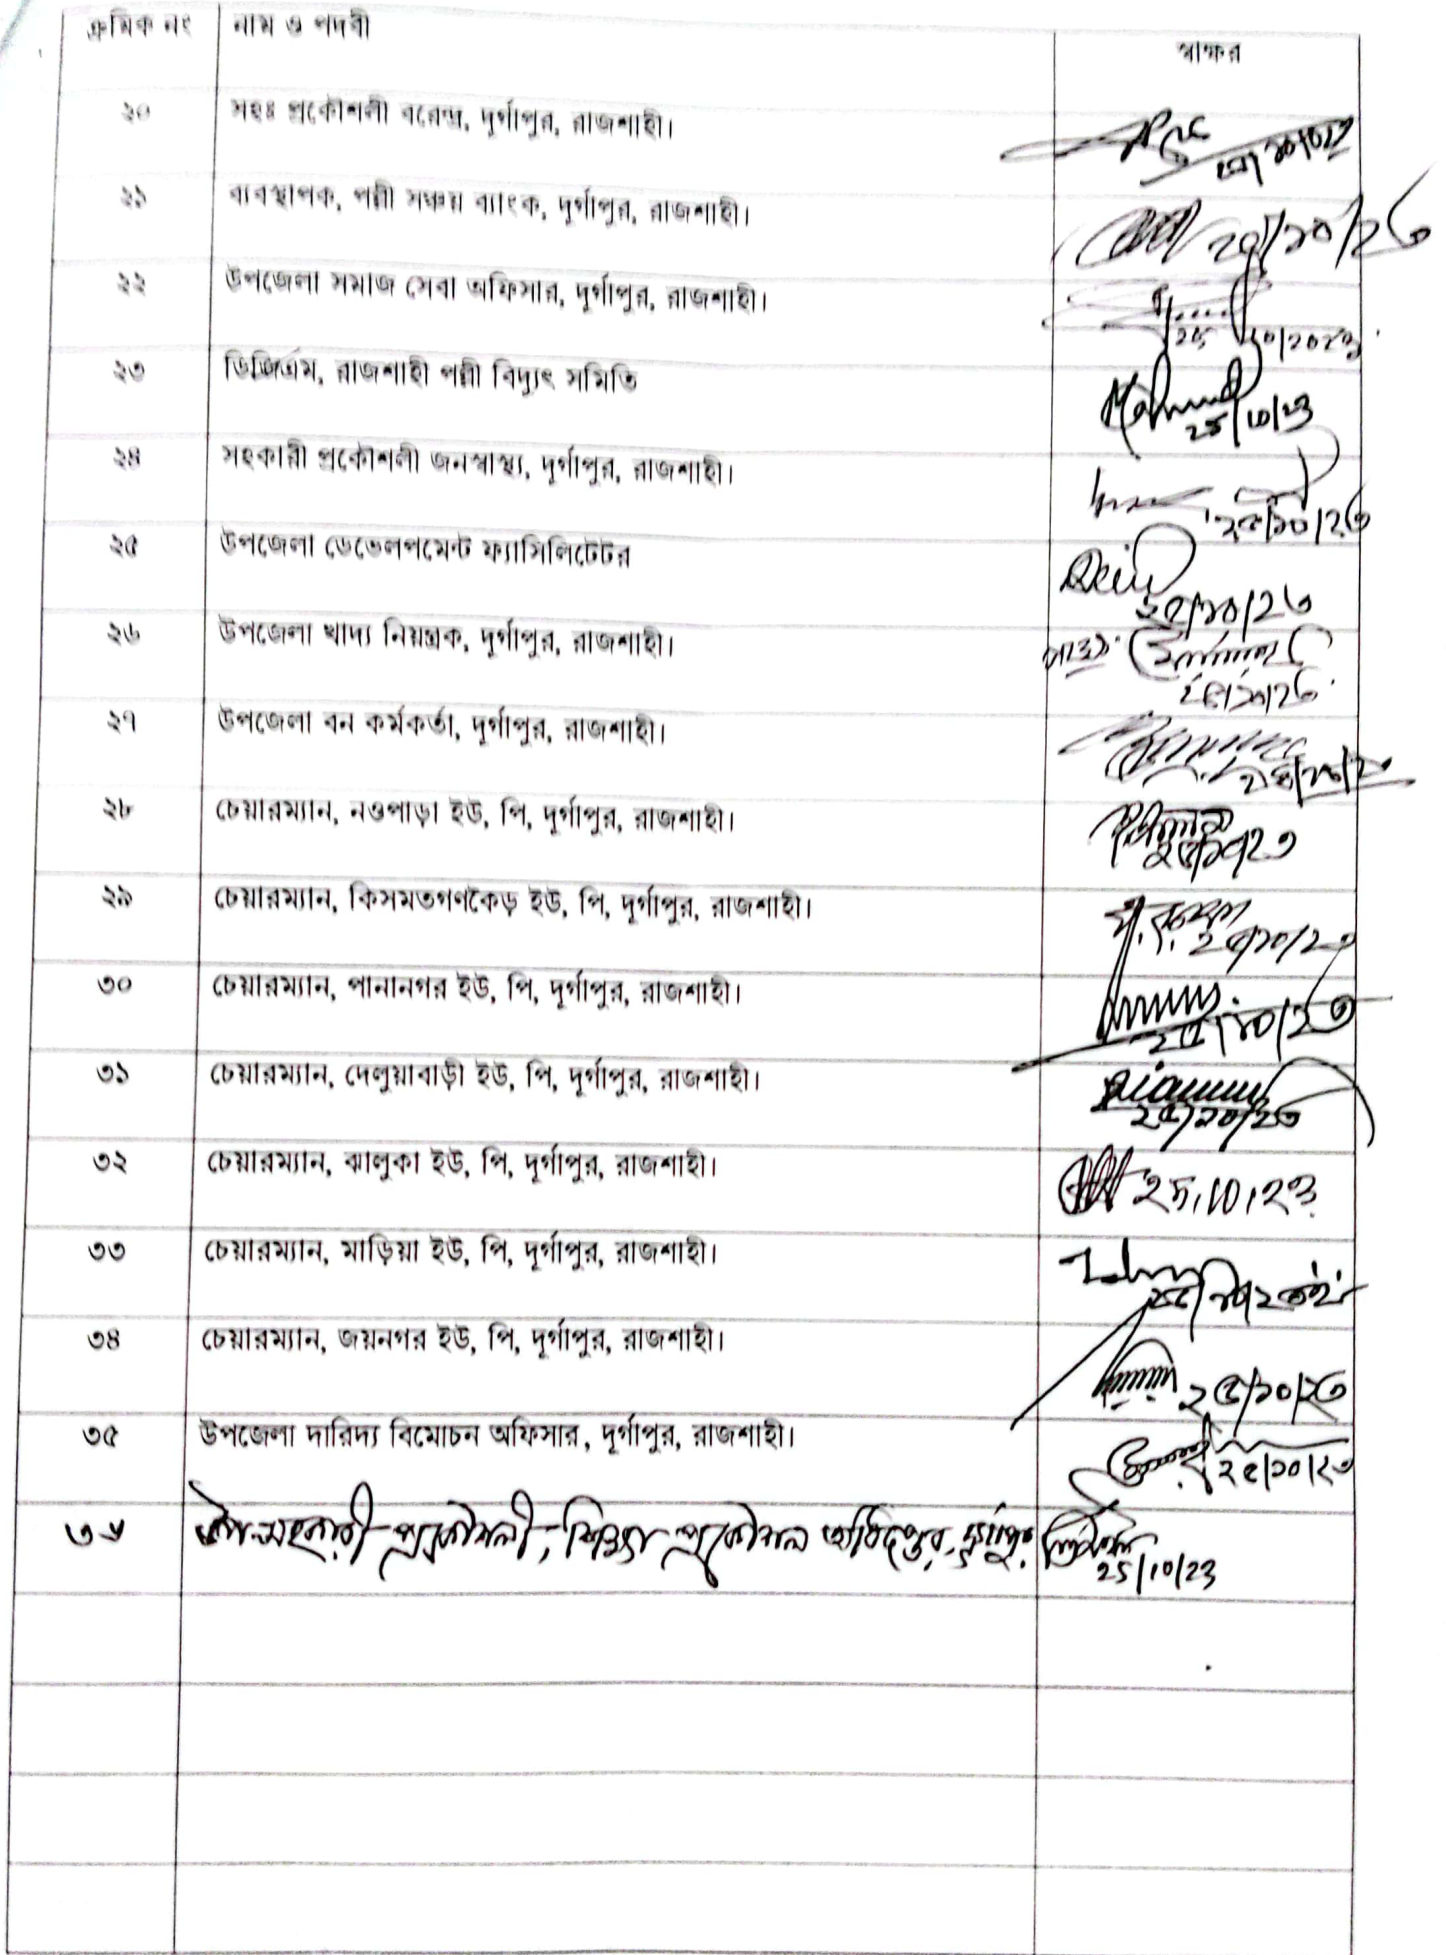 ক্রমিক নং নাম ও পদবী স্বাক্ষর
২০ সহঃ প্রকৌশলী বরেন্দ্র, দূর্গাপুর, রাজশাহী।
২১ ব্যবস্থাপক, পল্লী সঞ্চয় ব্যাংক, দূর্গাপুর, রাজশাহী। ২৫/১০/২৩
২২ উপজেলা সমাজ সেবা অফিসার, দূর্গাপুর, রাজশাহী। 25/10/2023
২৩ ডিজিএম, রাজশাহী পল্লী বিদ্যুৎ সমিতি 25/10/23
২৪ সহকারী প্রকৌশলী জনস্বাস্থ্য, দূর্গাপুর, রাজশাহী। ২৫/১০/২৩
২৫ উপজেলা ডেভেলপমেন্ট ফ্যাসিলিটেটর ২৫/১০/২৩
২৬ উপজেলা খাদ্য নিয়ন্ত্রক, দূর্গাপুর, রাজশাহী। ২৫/১০/২৩
২৭ উপজেলা বন কর্মকর্তা, দূর্গাপুর, রাজশাহী।
২৮ চেয়ারম্যান, নওপাড়া ইউ, পি, দূর্গাপুর, রাজশাহী। ২৫/১০/২৩
২৯ চেয়ারম্যান, কিসমতগণকৈড় ইউ, পি, দূর্গাপুর, রাজশাহী। ২৫/১০/২৩
৩০ চেয়ারম্যান, পানানগর ইউ, পি, দূর্গাপুর, রাজশাহী। ২৫/১০/২৩
৩১ চেয়ারম্যান, দেলুয়াবাড়ী ইউ, পি, দূর্গাপুর, রাজশাহী। ২৫/১০/২৩
৩২ চেয়ারম্যান, ঝালুকা ইউ, পি, দূর্গাপুর, রাজশাহী। 25.10.23
৩৩ চেয়ারম্যান, মাড়িয়া ইউ, পি, দূর্গাপুর, রাজশাহী।
৩৪ চেয়ারম্যান, জয়নগর ইউ, পি, দূর্গাপুর, রাজশাহী। ২৫/১০/২৩
৩৫ উপজেলা দারিদ্য বিমোচন অফিসার, দূর্গাপুর, রাজশাহী। ২৫/১০/২৩
৩৬ উপ-সহকারী প্রকৌশলী, শিক্ষা প্রকৌশল অধিদপ্তর, দূর্গাপুর, 25/10/23